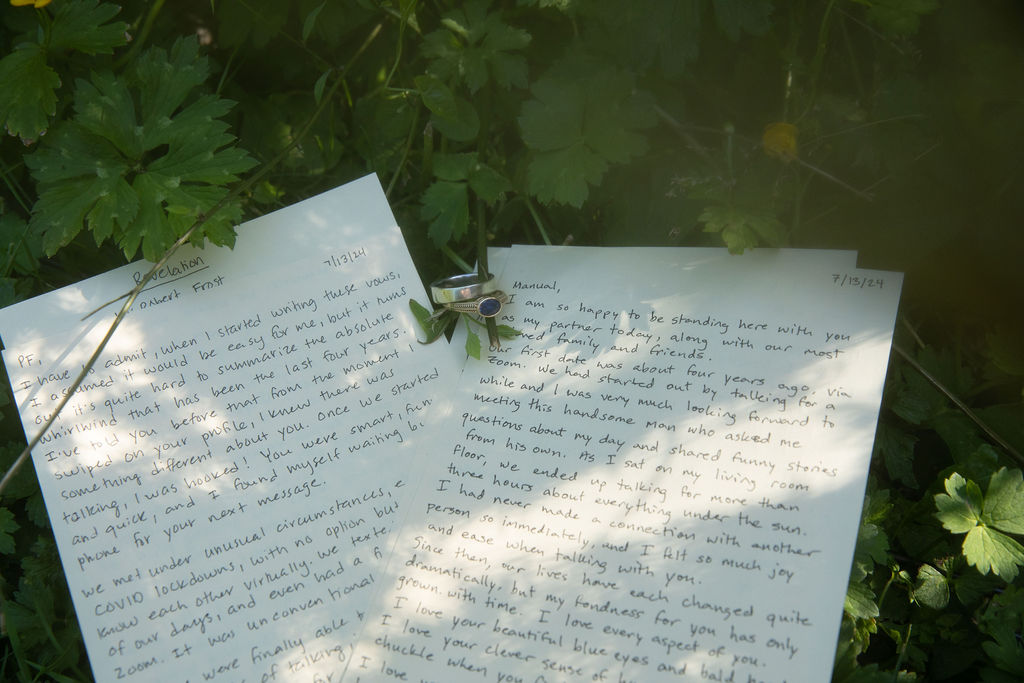 Revelation
Robert Frost
7/13/24
PF,
I have to admit, when I started writing these vows,
I assumed it would be easy for me, but it turns
out it's quite hard to summarize the absolute
whirlwind that has been the last four years.
I've told you before that from the moment I
swiped on your profile, I knew there was
something different about you. Once we started
talking, I was hooked! You were smart, fun
and quick, and I found myself waiting by
phone for your next message.
We met under unusual circumstances,
COVID lockdowns, with no option but
know each other virtually. We texte
of our days, and even had a fi
Zoom. It was unconventional
were finally able
of talking,
7/13/24
Manual,
I am so happy to be standing here with you
as my partner today, along with our most
loved family and friends.
Our first date was about four years ago, via
Zoom. We had started out by talking for a
while and I was very much looking forward to
meeting this handsome man who asked me
questions about my day and shared funny stories
from his own. As I sat on my living room
floor, we ended up talking for more than
three hours about everything under the sun.
I had never made a connection with another
person so immediately, and I felt so much joy
and ease when talking with you.
Since then, our lives have each changed quite
dramatically, but my fondness for you has only
grown with time. I love every aspect of you.
I love your beautiful blue eyes and bald
I love your clever sense of
chuckle when you
I love